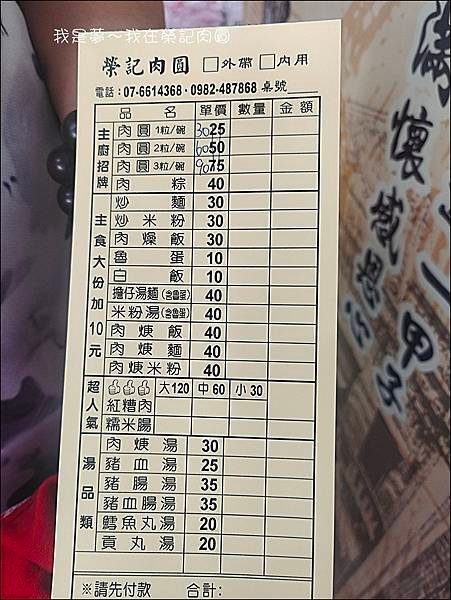 我是夢～我在榮記肉圓
榮記肉圓 □外帶 □內用
電話：07-6614368‧0982-487868 桌號
品名 單價 數量 金額
主廚招牌
肉圓 1粒/碗 30 25
肉圓 2粒/碗 60 50
肉圓 3粒/碗 90 75
肉粽 40
主食大份加10元
炒麵 30
炒米粉 30
肉燥飯 30
魯蛋 10
白飯 10
擔仔湯麵(含魯蛋) 40
米粉湯(含魯蛋) 40
肉焿飯 40
肉焿麵 40
肉焿米粉 40
超人氣
大120 中60 小30
紅糟肉
糯米腸
湯品類
肉焿湯 30
豬血湯 25
豬腸湯 35
豬血腸湯 35
鱈魚丸湯 20
貢丸湯 20
※請先付款 合計：
滿懷感恩
一甲子